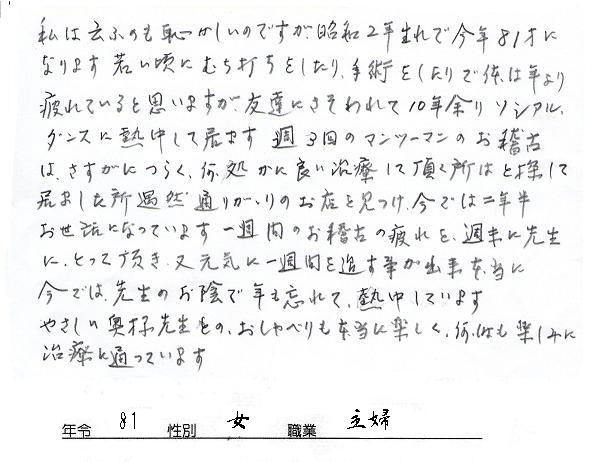 私は云ふのも恥かしいのですが、昭和2年生れで今年81才に
なります 若い頃にむち打ちをしたり、手術をしたりで体は年より
疲れていると思いますが、友達にさそわれて10年余りソシアル、
ダンスに熱中して居ます 週3回のマンツーマンのお稽古
は、さすがにつらく、何処かに良い治療して頂く所はと探して
居ました所偶然通りがかりのお店を見つけ、今では二年半
お世話になっています 一週間のお稽古の疲れを、週末に先生
に、とって頂き、又元気に一週間を過す事が出来本当に
今では、先生のお陰で年も忘れて、熱中しています
やさしい奥様先生との、おしゃべりも本当に楽しく、何よりも楽しみに
治療に通っています
年令 81 性別 女 職業 主婦